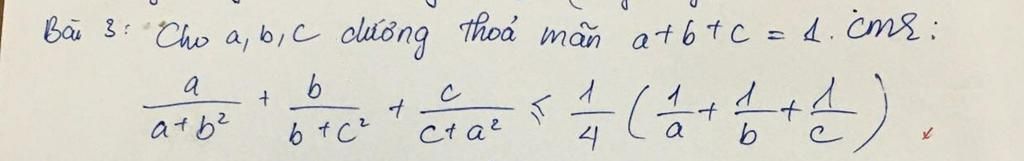 Bài 3: Cho a, b, c dương thoả mãn a + b + c = 1. cmr:
a/(a+b²) + b/(b+c²) + c/(c+a²) ≤ 1/4 (1/a + 1/b + 1/c)